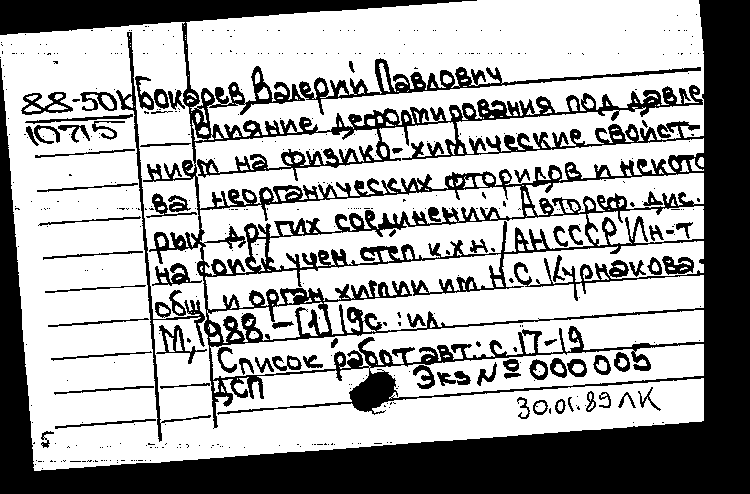 Бокарев, Валерий Павлович
88-50к
10715
Влияние деформирования под давле
нием на физико-химические свойст-
ва неорганических фторидов и некото
рых других соединений: Автореф. дис.
на соиск. учен. степ. к.х.н. / АН СССР, Ин-т
общ. и орган. химии им. Н.С. Курнакова.-
М., 1988. - [1] 19с. : ил.
Список работ авт.: с. 17-19
ДСП Экз № 000005
30.01.89 ЛК
5